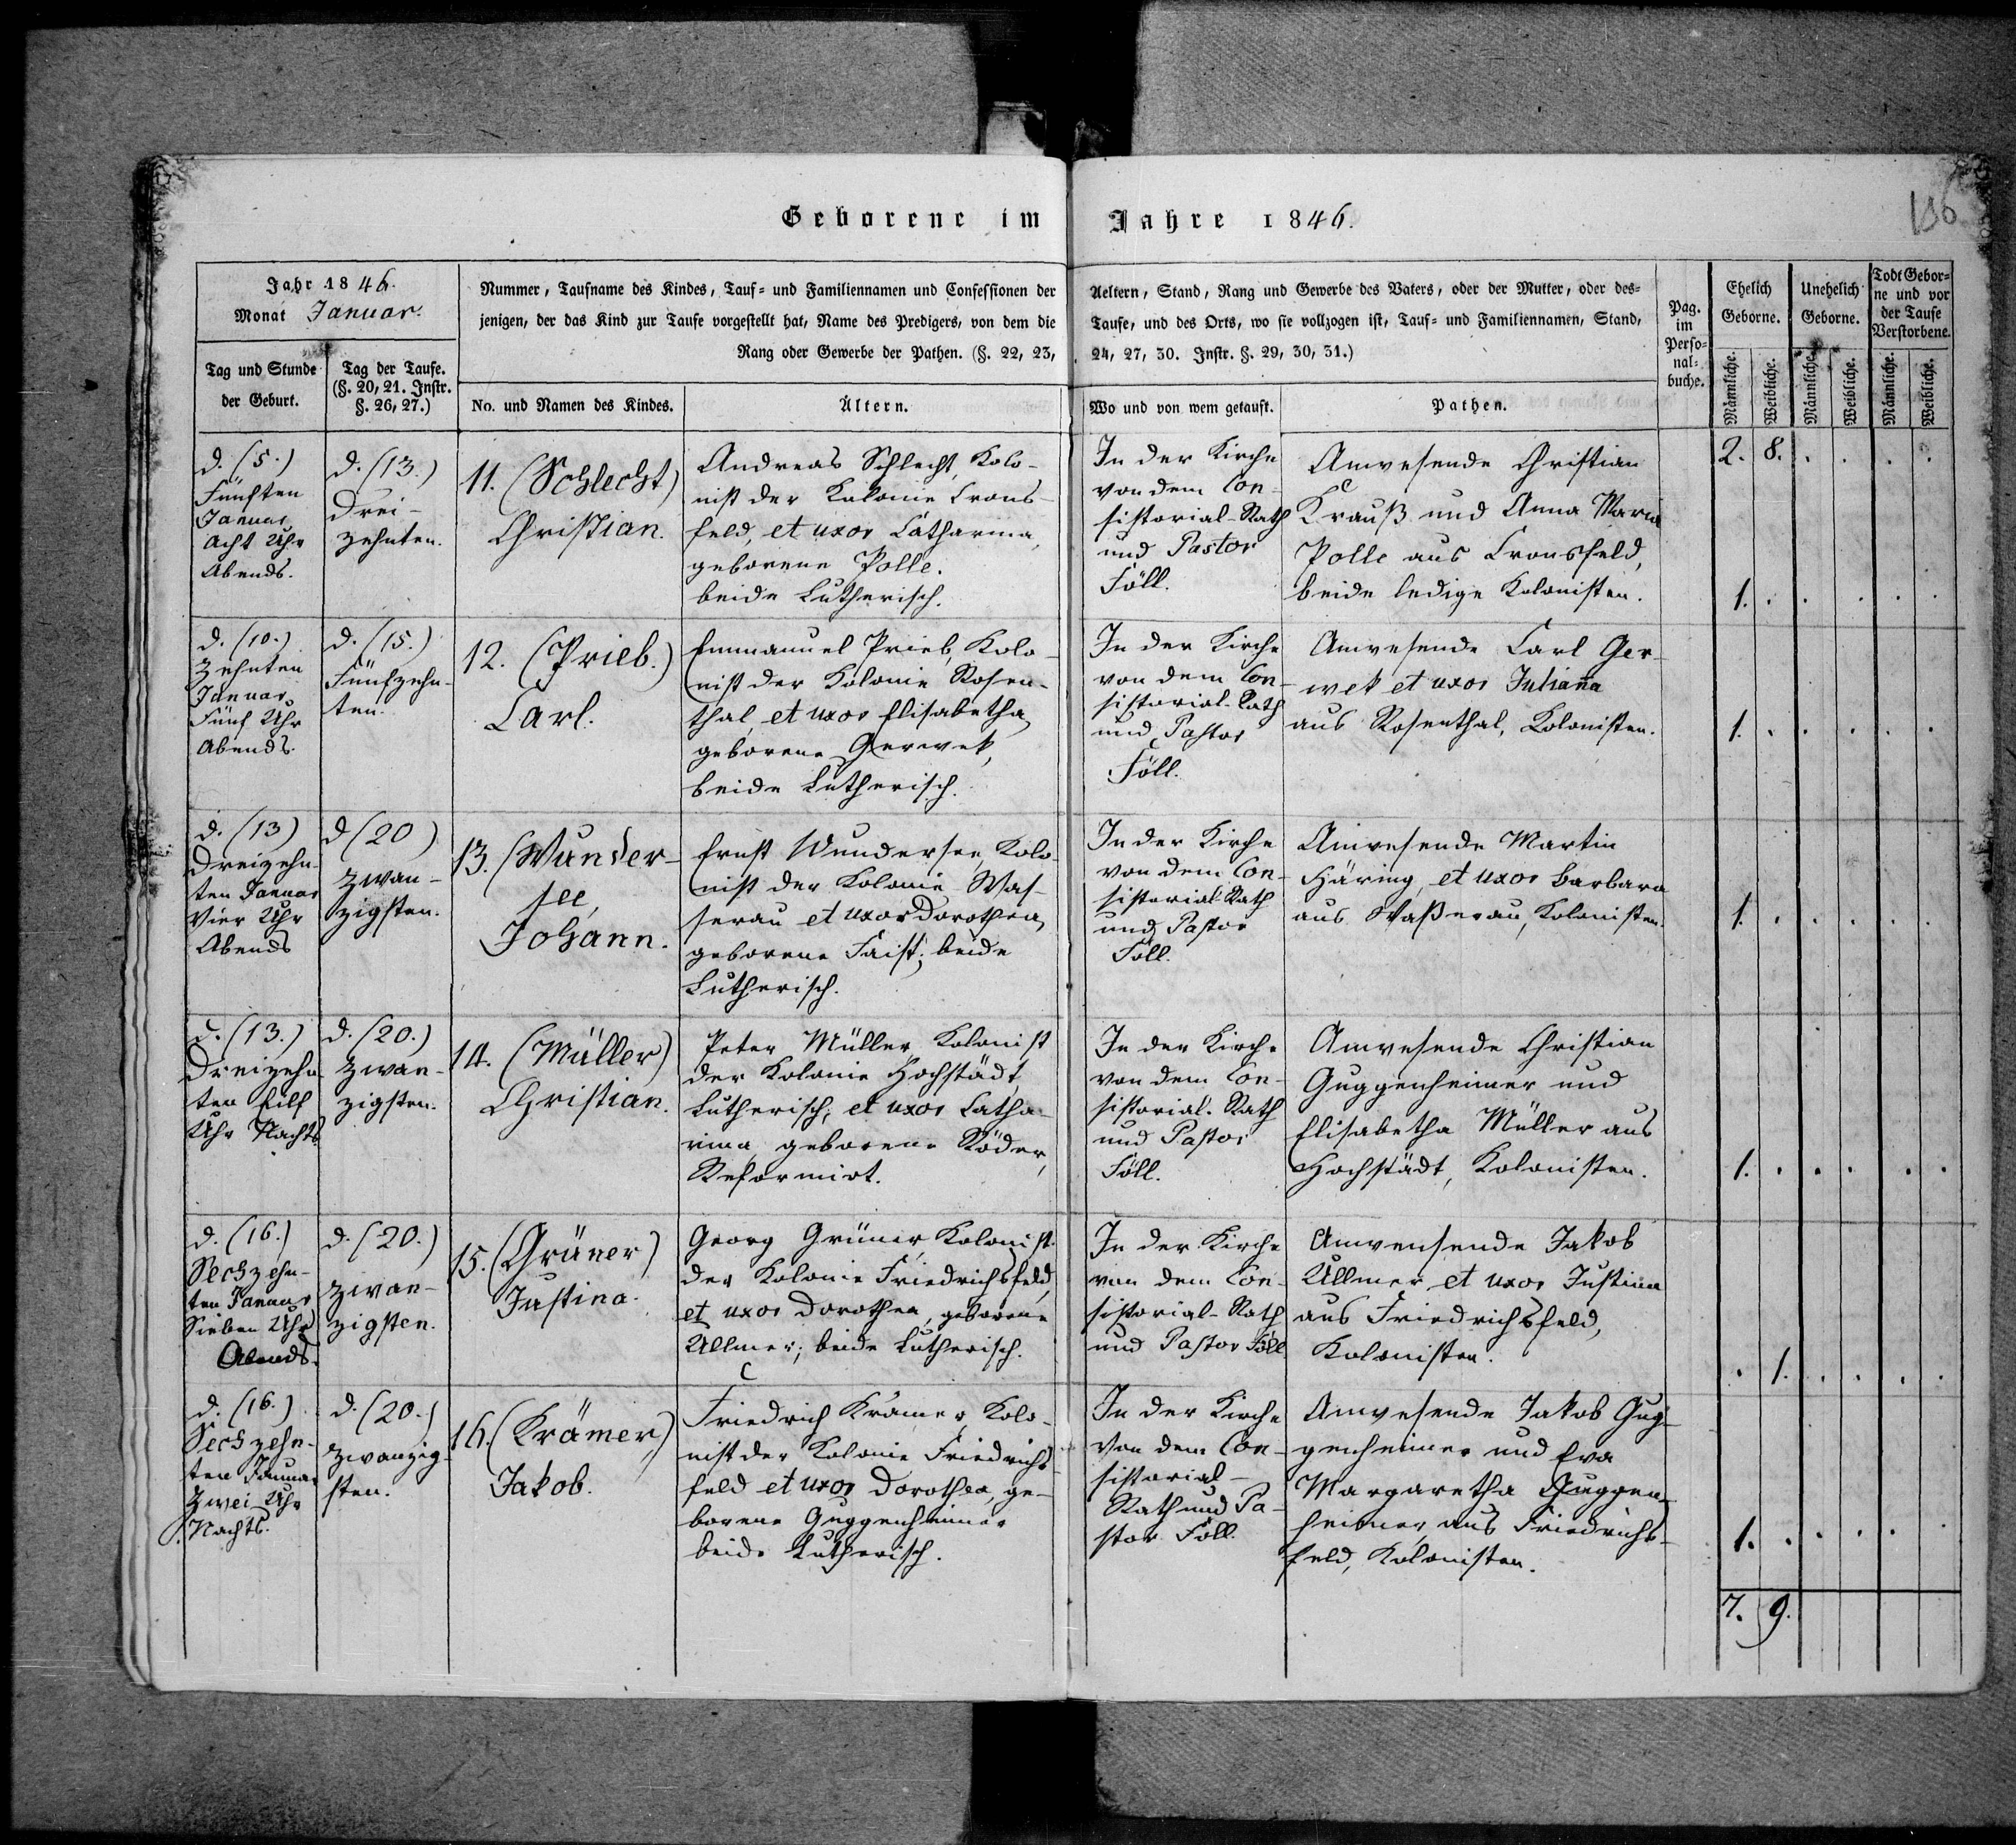 Geborene im Jahre 1846.
Jahr 1846.
Monat Januar.
Nummer, Taufname des Kindes, Tauf= und Familiennamen und Confessionen der Aeltern, Stand, Rang und Gewerbe des Vaters, oder der Mutter, oder des=
jenigen, der das Kind zur Taufe vorgestellt hat, Name des Predigers, von dem die Taufe, und des Orts, wo sie vollzogen ist, Tauf= und Familiennamen, Stand,
Rang oder Gewerbe der Pathen. (§. 22, 23, 24, 27, 30. Instr. §. 29, 30, 31.)
Tag und Stunde
der Geburt.
Tag der Taufe.
(§. 20, 21. Instr.
§. 26, 27.)
No. und Namen des Kindes.
Ältern.
Wo und von wem getauft.
Pathen.
Pag.
im
Perso=
nal=
buche.
Ehelich
Geborne.
Unehelich
Geborne.
Todt Gebor=
ne und vor
der Taufe
Verstorbene.
Männliche.
Weibliche.
Männliche.
Weibliche.
Männliche.
Weibliche.
d. (5.)
Fünften
Januar
Acht Uhr
Abends.
d. (13.)
Drei-
zehnten.
11. (Schlecht)
Christian.
Andreas Schlecht, Kolo-
nist der Kolonie Crons-
feld, et uxor Catharina,
geborene Polle.
beide Lutherisch.
In der Kirche
von dem Con-
sistorial-Rath
und Pastor
Föll.
Anwesende Christian
Krauß und Anna Maria
Polle aus Cronsfeld,
beide ledige Kolonisten.
2. 8. . . . .
1. . . . . .
d. (10.)
Zehnten
Januar
Fünf Uhr
Abends.
d. (15.)
Fünfzehn-
ten.
12. (Prieb.)
Carl.
Emmanuel Prieb, Kolo-
nist der Kolonie Rosen-
thal, et uxor Elisabetha
geborene Gerwek,
beide Lutherisch.
In der Kirche
von dem Con-
sistorial-Rath
und Pastor
Föll.
Anwesende Carl Ger-
wek et uxor Juliana
aus Rosenthal, Kolonisten.
1. . . . . .
d. (13)
Dreizehn-
ten Januar
Vier Uhr
Abends
d (20)
Zwan-
zigsten.
13. (Wunder-
see,
Johann.
Ernst Wundersee, Kolo-
nist der Kolonie Was-
serau et uxor Dorothea,
geborene Faist; beide
Lutherisch.
In der Kirche
von dem Con-
sistorial-Rath
und Pastor
Föll.
Anwesende Martin
Häring, et uxor Barbara
aus Waßerau, Kolonisten.
1. . . . . .
d. (13.)
Dreizehn-
ten Eilf
Uhr Nachts
d. (20.)
Zwan-
zigsten.
14. (Müller)
Christian.
Peter Müller Kolonist
der Kolonie Hochstädt,
Lutherisch; et uxor Catha-
rina geborene Röder,
Reformirt.
In der Kirche
von dem Con-
sistorial-Rath
und Pastor
Föll.
Anwesende Christian
Guggenheimer und
Elisabetha Müller aus
Hochstädt, Kolonisten.
1. . . . . .
d. (16.)
Sechzehn-
ten Januar
Sieben Uhr
Abends.
d. (20.)
Zwan-
zigsten.
15. (Grüner)
Justina.
Georg Grüner Kolonist
der Kolonie Friedrichsfeld,
et uxor Dorothea, geborene
Ullmer; beide Lutherisch.
In der Kirche
von dem Con-
sistorial-Rath
und Pastor Föll
Anwensende Jakob
Ullmer et uxor Justina
aus Friedrichsfeld,
Kolonisten.
. 1. . . . .
d. (16.)
Sechzehn-
ten Januar
Zwei Uhr
Nachts.
d. (20.)
Zwanzig-
sten.
16. (Krämer,)
Jakob.
Friedrich Krämer, Kolo-
nist der Kolonie Friedrichs-
feld et uxor Dorothea, ge-
borene Guggenheimer
beide Lutherisch.
In der Kirche
von dem Con-
sistorial-
Rath und Pa-
stor Föll.
Anwesende Jakob Gug-
genheimer und Eva
Margaretha Guggen-
heimer aus Friedrichs-
feld, Kolonisten.
1. . . . . .
7. 9.